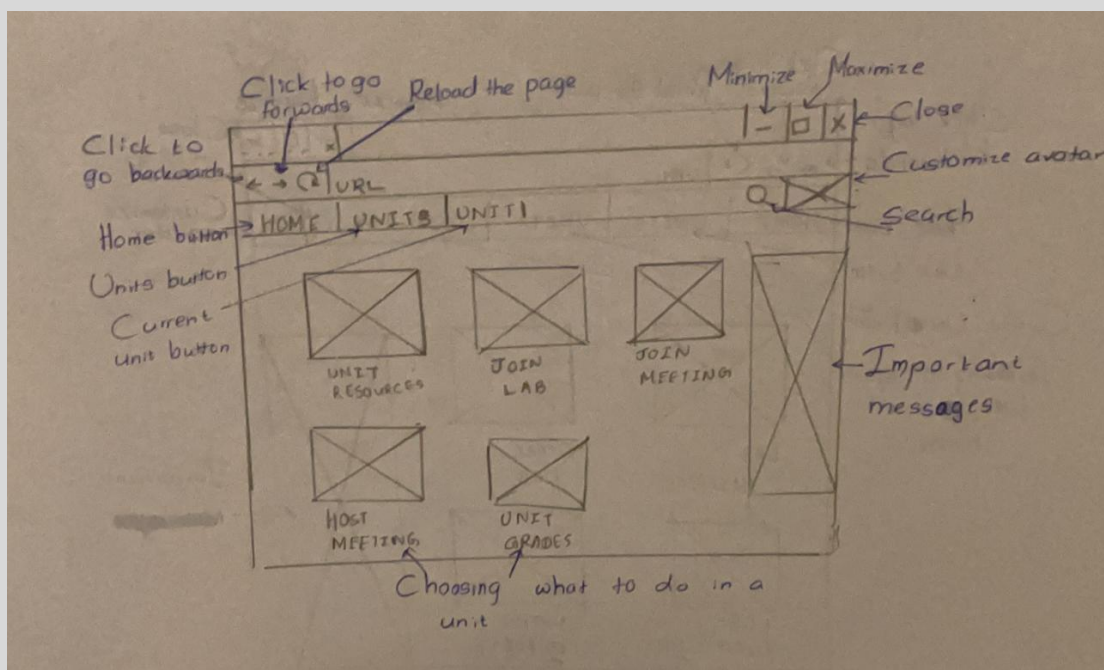 Click to go
forwards
Reload the page
Minimize
Maximize
Close
Click to
go backwards
URL
Customize avatar
Search
HOME
UNITS
UNIT1
Home button
Units button
Current
unit button
UNIT
RESOURCES
JOIN
LAB
JOIN
MEETING
Important
messages
HOST
MEETING
UNIT
GRADES
Choosing what to do in a
unit